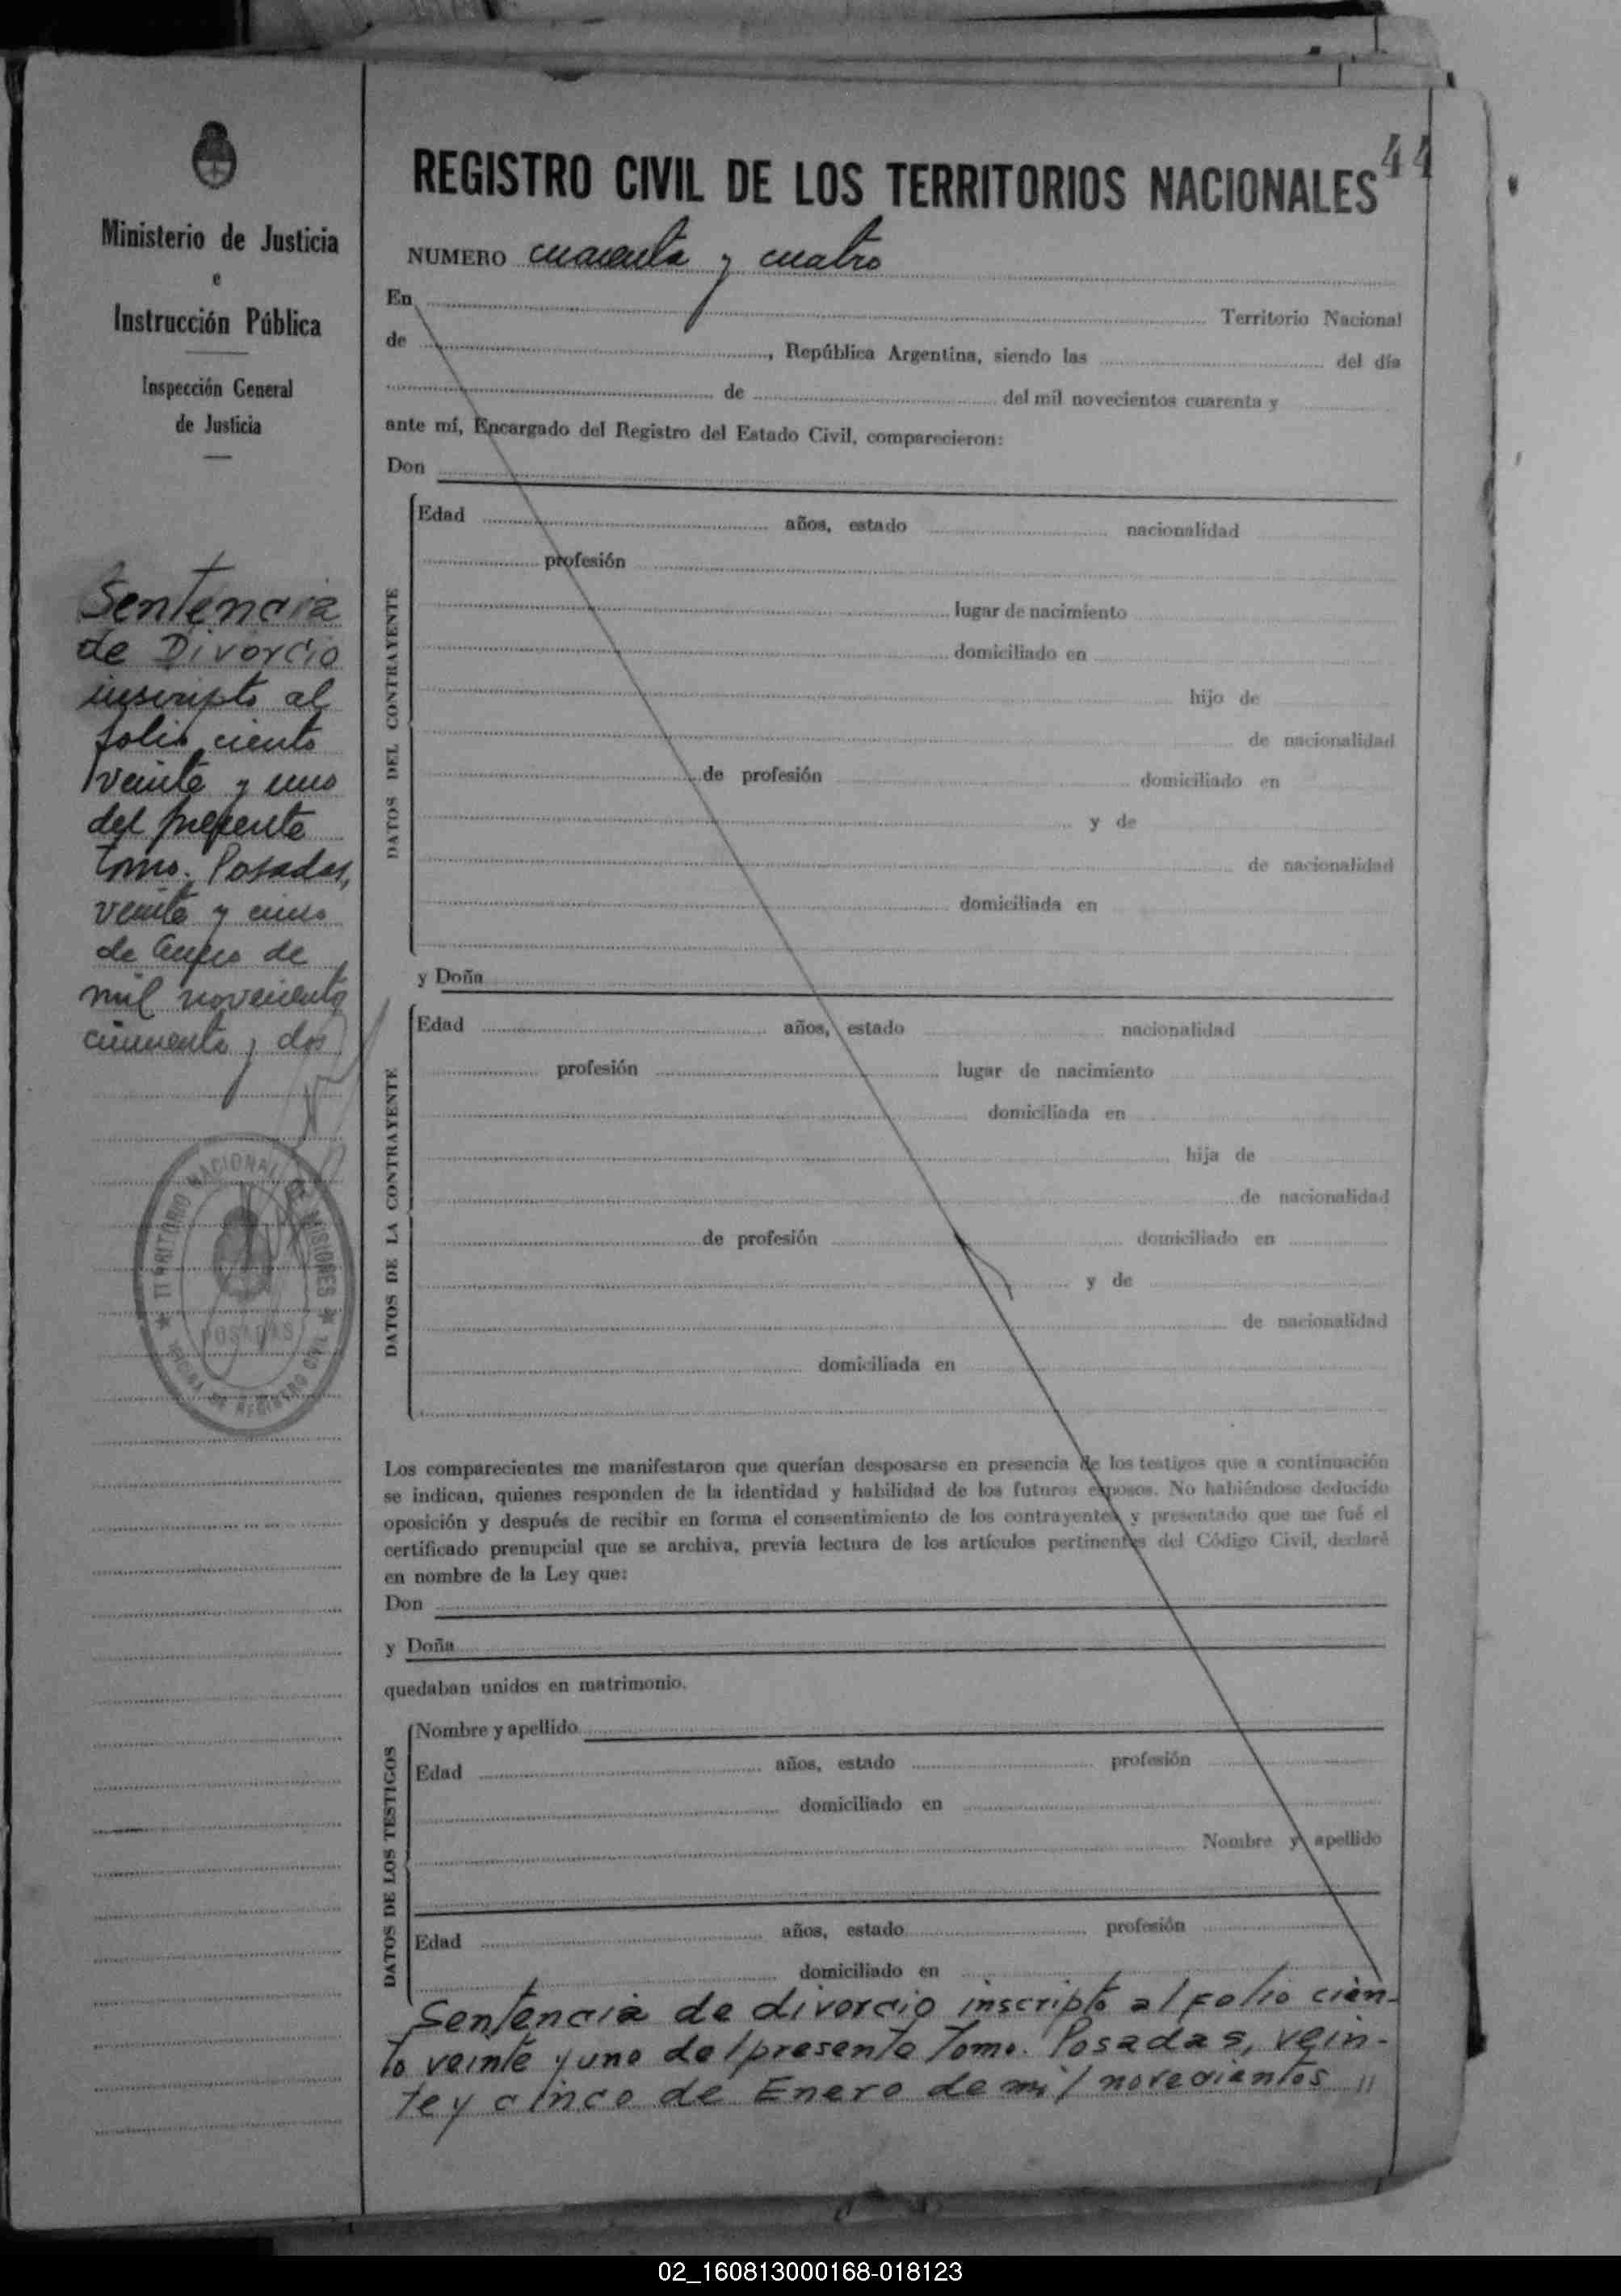 44
Ministerio de Justicia
e
Instrucción Pública
Inspección General
de Justicia
Sentencia
de Divorcio
inscripto al
folio ciento
veinte y uno
del presente
tomo. Posadas,
veinte y cinco
de Enero de
mil novecientos
cincuenta y dos
TERRITORIO NACIONAL DE MISIONES
POSADAS
OFICINA DE REGISTRO CIVIL
REGISTRO CIVIL DE LOS TERRITORIOS NACIONALES
NUMERO cuarenta y cuatro
En Territorio Nacional
de , República Argentina, siendo las del día
de del mil novecientos cuarenta y
ante mí, Encargado del Registro del Estado Civil, comparecieron:
Don
DATOS DEL CONTRAYENTE
Edad años, estado nacionalidad
profesión
lugar de nacimiento
domiciliado en
hijo de
de nacionalidad
de profesión domiciliado en
y de
de nacionalidad
domiciliada en
y Doña
DATOS DE LA CONTRAYENTE
Edad años, estado nacionalidad
profesión lugar de nacimiento
domiciliada en
hija de
de nacionalidad
de profesión domiciliado en
y de
de nacionalidad
domiciliada en
Los comparecientes me manifestaron que querían desposarse en presencia de los testigos que a continuación
se indican, quienes responden de la identidad y habilidad de los futuros esposos. No habiéndose deducido
oposición y después de recibir en forma el consentimiento de los contrayentes y presentado que me fué el
certificado prenupcial que se archiva, previa lectura de los artículos pertinentes del Código Civil, declaré
en nombre de la Ley que:
Don
y Doña
quedaban unidos en matrimonio.
DATOS DE LOS TESTIGOS
Nombre y apellido
Edad años, estado profesión
domiciliado en
Nombre y apellido
Edad años, estado profesión
domiciliado en
Sentencia de divorcio inscripto al folio cien-
to veinte y uno del presente Tomo. Posadas, vein-
te y cinco de Enero de mil novecientos //
02_160813000168-018123